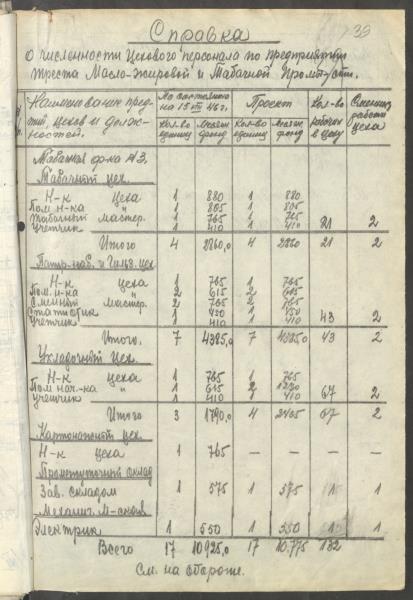 39
Справка
о численности Цехового персонала по предприятиям
треста Масло-жировой и Табачной Пром-сти.
Наименование пред-тий, цехов и долж-ностей. | По состоянию на 15 VIII 46 г. | Проект | Кол-во рабочих в цеху | Сменность работы цеха
Кол-во единиц | Месячн. фонд | Кол-во единиц | Месячн. фонд
Табачная ф-ка №3.
Табачный цех.
Н-к цеха 1 880 1 880
Пом. н-ка " 1 805 1 805
Табачный мастер. 1 765 1 765
учетчик 1 410 1 410 21 2
Итого 4 2860,0 4 2860 21 2
Н-к цеха 1 765 1 765
Пом. н-ка " 2 615 2 615
Сменный мастер. 2 765 2 765
Статистик 1 450 1 450
учетчик 1 410 1 410 43 2
Итого. 7 4385,0 7 4385,0 43 2
Укладочный Цех.
Н-к цеха 1 765 1 765
Пом нач-ка " 1 615 2 1230
учетчик 1 410 1 410 67 2
Итого 3 1790,0 4 2405 67 2
Картонажный цех.
Н-к цеха 1 765 — — — —
Промежуточный склад
Зав. складом 1 575 1 575 1
Механич. М-ская
Электрик 1 550 1 550 1
Всего 17 10925,0 17 10.775 132
См. на обороте.